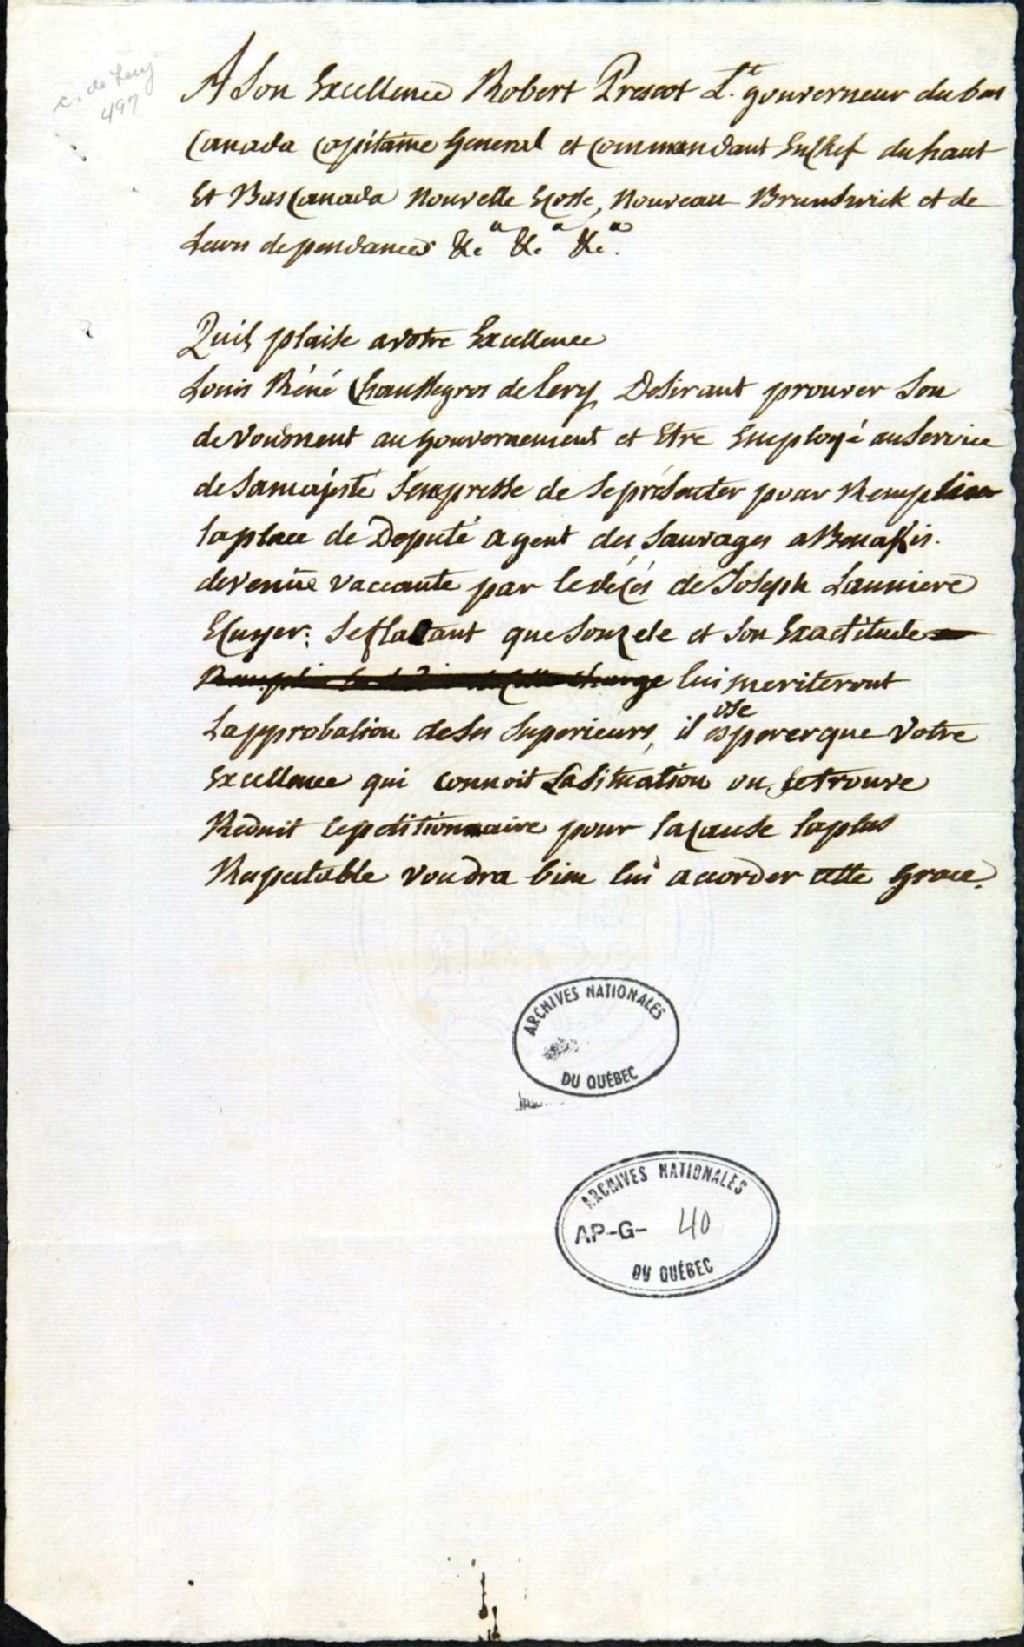 c. de Lery
497
A Son Excellence Robert Prescot Lt. gouverneur du bas
Canada capitaine General et commandant En Chef du haut
Et Bas Canada Nouvelle Ecosse, Nouveau Brunswick et de
Leurs dependances &c.a &c.a &c.a
Quil plaise a votre Excellence
Louis Réné Chaussegros de Lery Desirant prouver Son
devoument au Gouvernement et Etre Employé au Service
de Sa majesté S'empresse de Se présenter pour Remplir
la place de Deputé agent des Sauvages a
devenüe vaccante par le décés de Joseph Launiere
Ecuyer: Se flatant que Son zele et Son Exactitude
charge lui meriteront
L'approbation de Ses Superieurs, il ose esperer que Votre
Excellence qui connoit La Situation ou Se trouve
Reduit le petitionnaire pour la cause la plus
Respectable voudra bien lui accorder cette Grace.
ARCHIVES NATIONALES
DU QUÉBEC
ARCHIVES NATIONALES
AP-G- 40
DU QUÉBEC